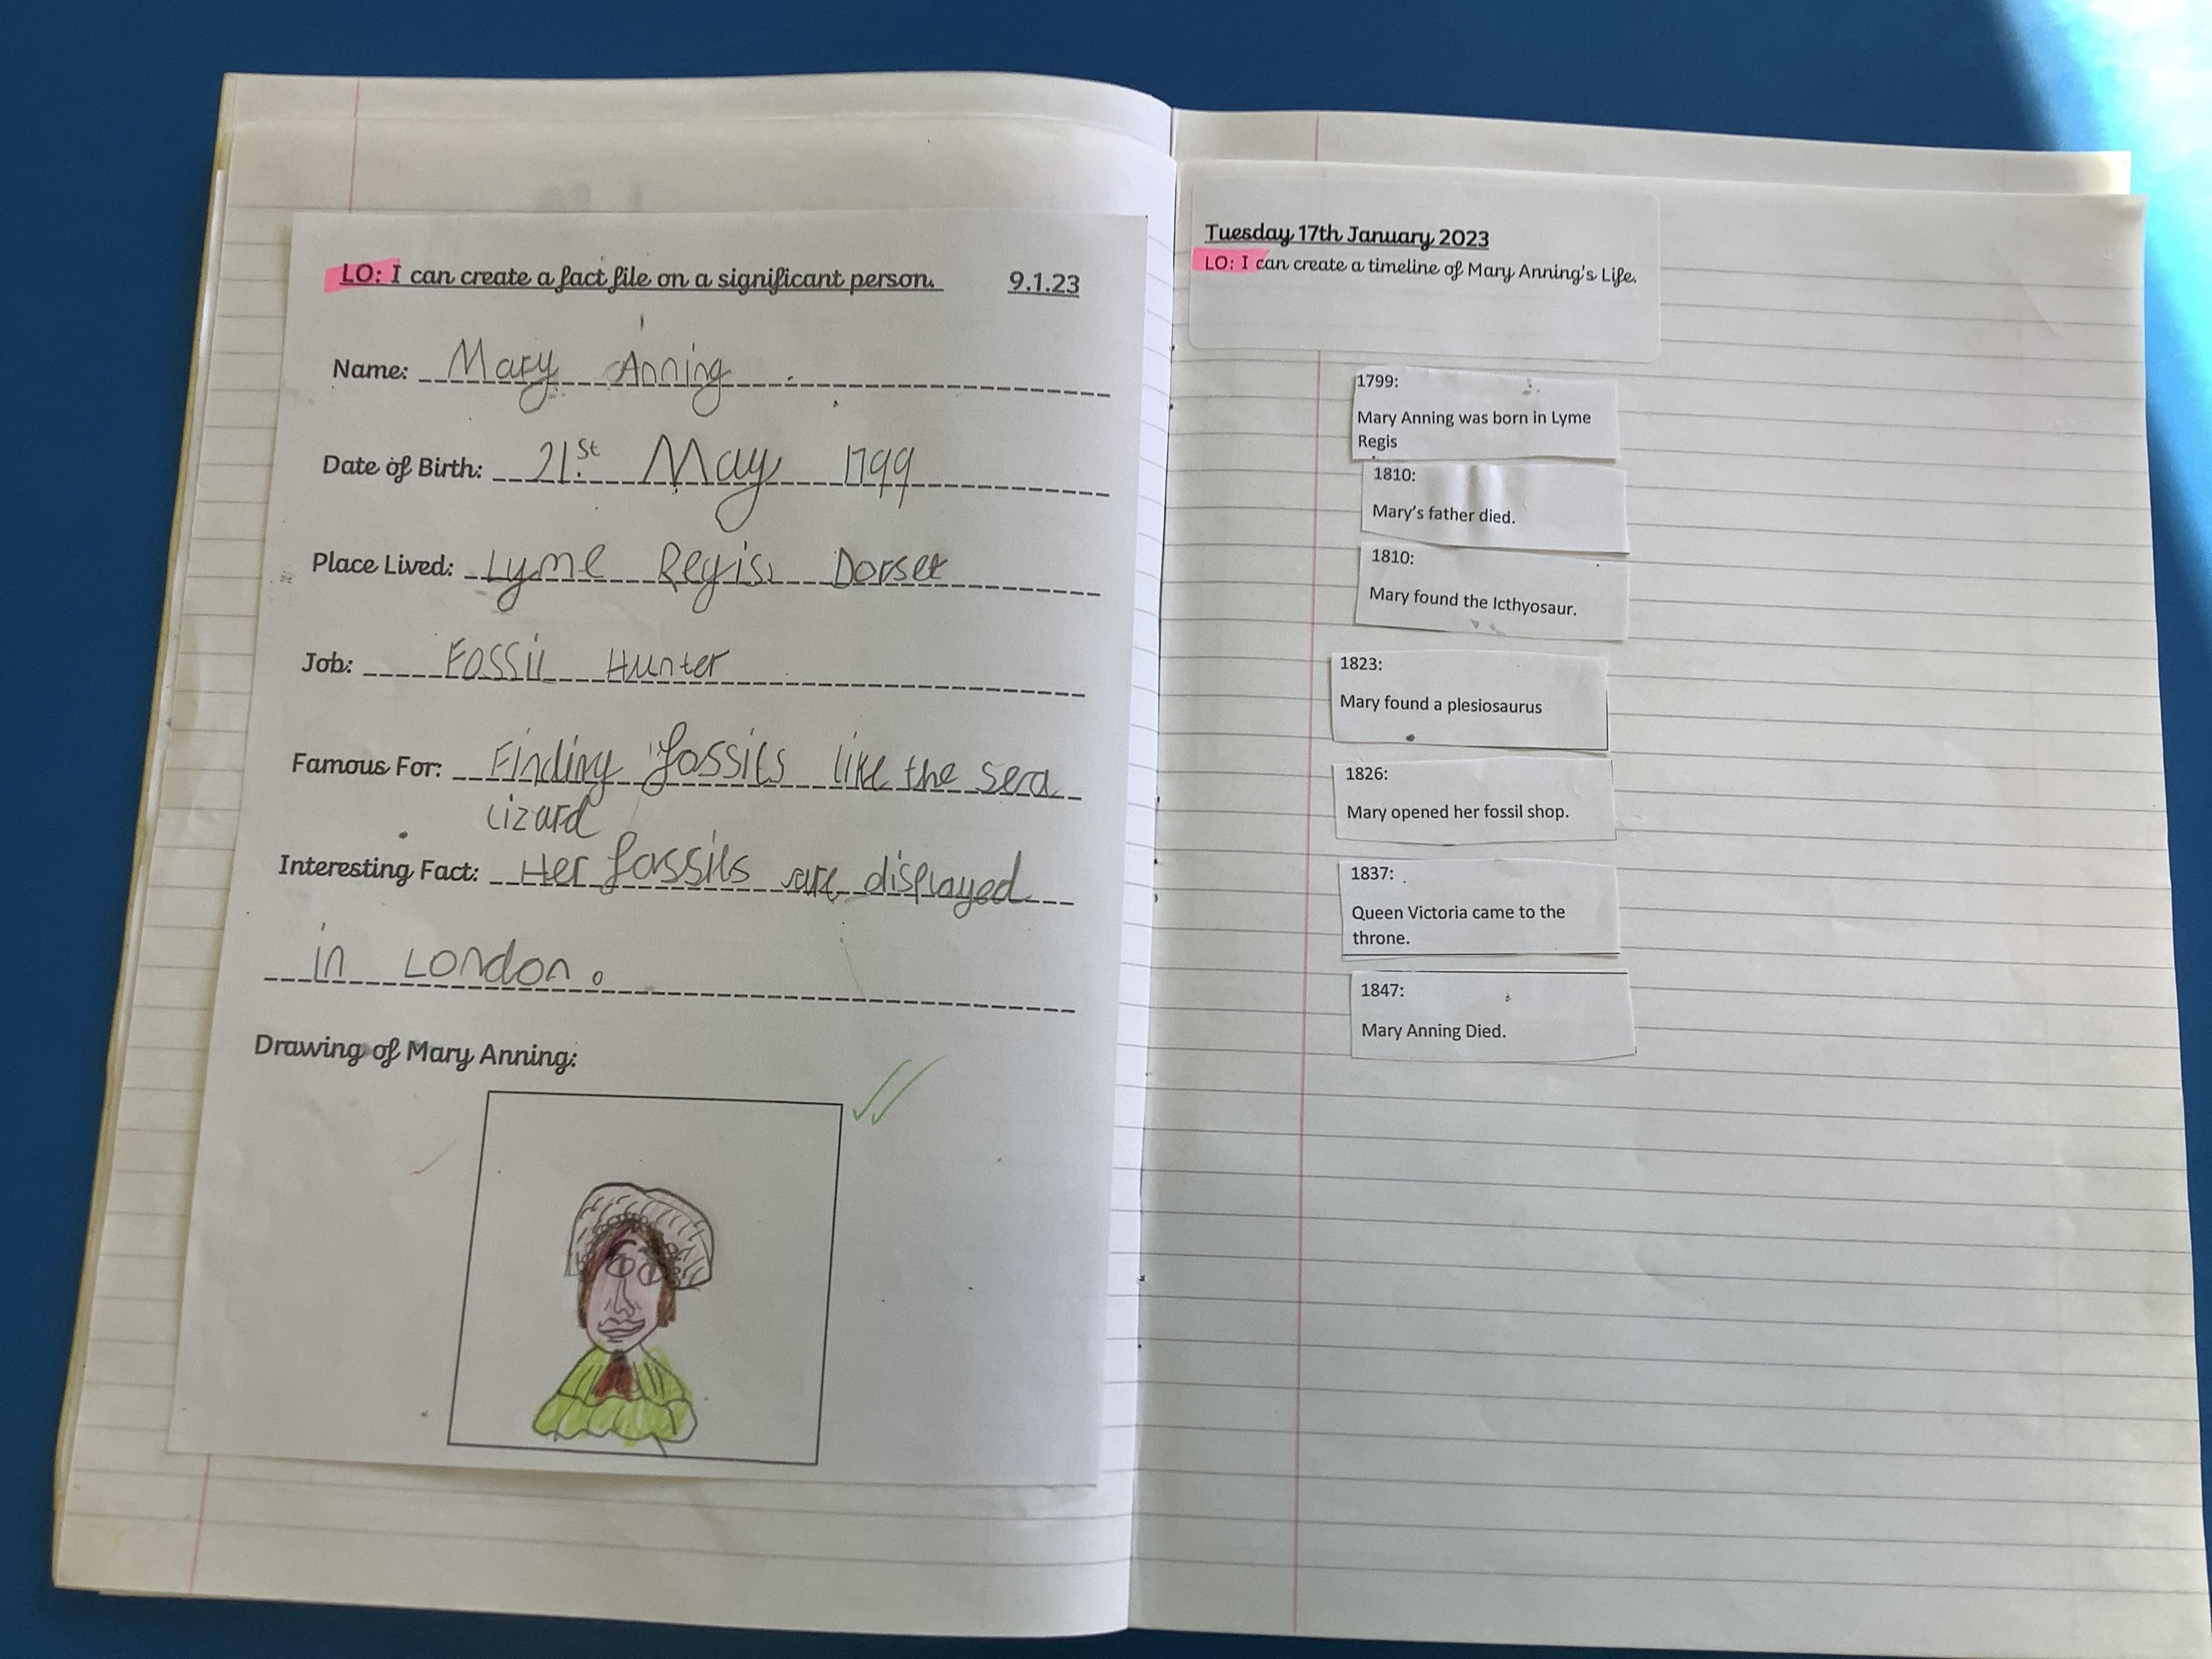 LO: I can create a fact file on a significant person. 9.1.23
Name: Mary Anning
Date of Birth: 21st May 1799
Place Lived: Lyme Regis, Dorset
Job: Fossil Hunter
Famous For: Finding fossils like the sea
lizard
Interesting Fact: Her fossils are displayed
in London.
Drawing of Mary Anning:
Tuesday 17th January 2023
LO: I can create a timeline of Mary Anning's Life.
1799:
Mary Anning was born in Lyme
Regis
1810:
Mary's father died.
1810:
Mary found the Icthyosaur.
1823:
Mary found a plesiosaurus
1826:
Mary opened her fossil shop.
1837:
Queen Victoria came to the
throne.
1847:
Mary Anning Died.